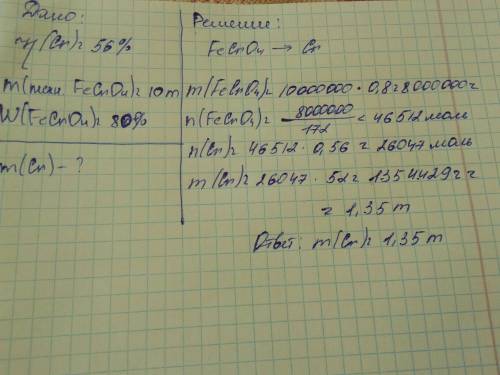 Дано:
η(Cr)= 56%
m(тех. FeCrO4)= 10 т
W(FeCrO4)= 80%
m(Cr) - ?
Решение:
FeCrO4 → Cr
m(FeCrO4)= 10000000 · 0,8= 8000000г
n(FeCrO4)= 8000000/172 = 46512 моль
n(Cr)= 46512 · 0,56 = 26047 моль
m(Cr)= 26047 · 52= 1354429г =
= 1,35 т
Ответ: m(Cr)= 1,35 т